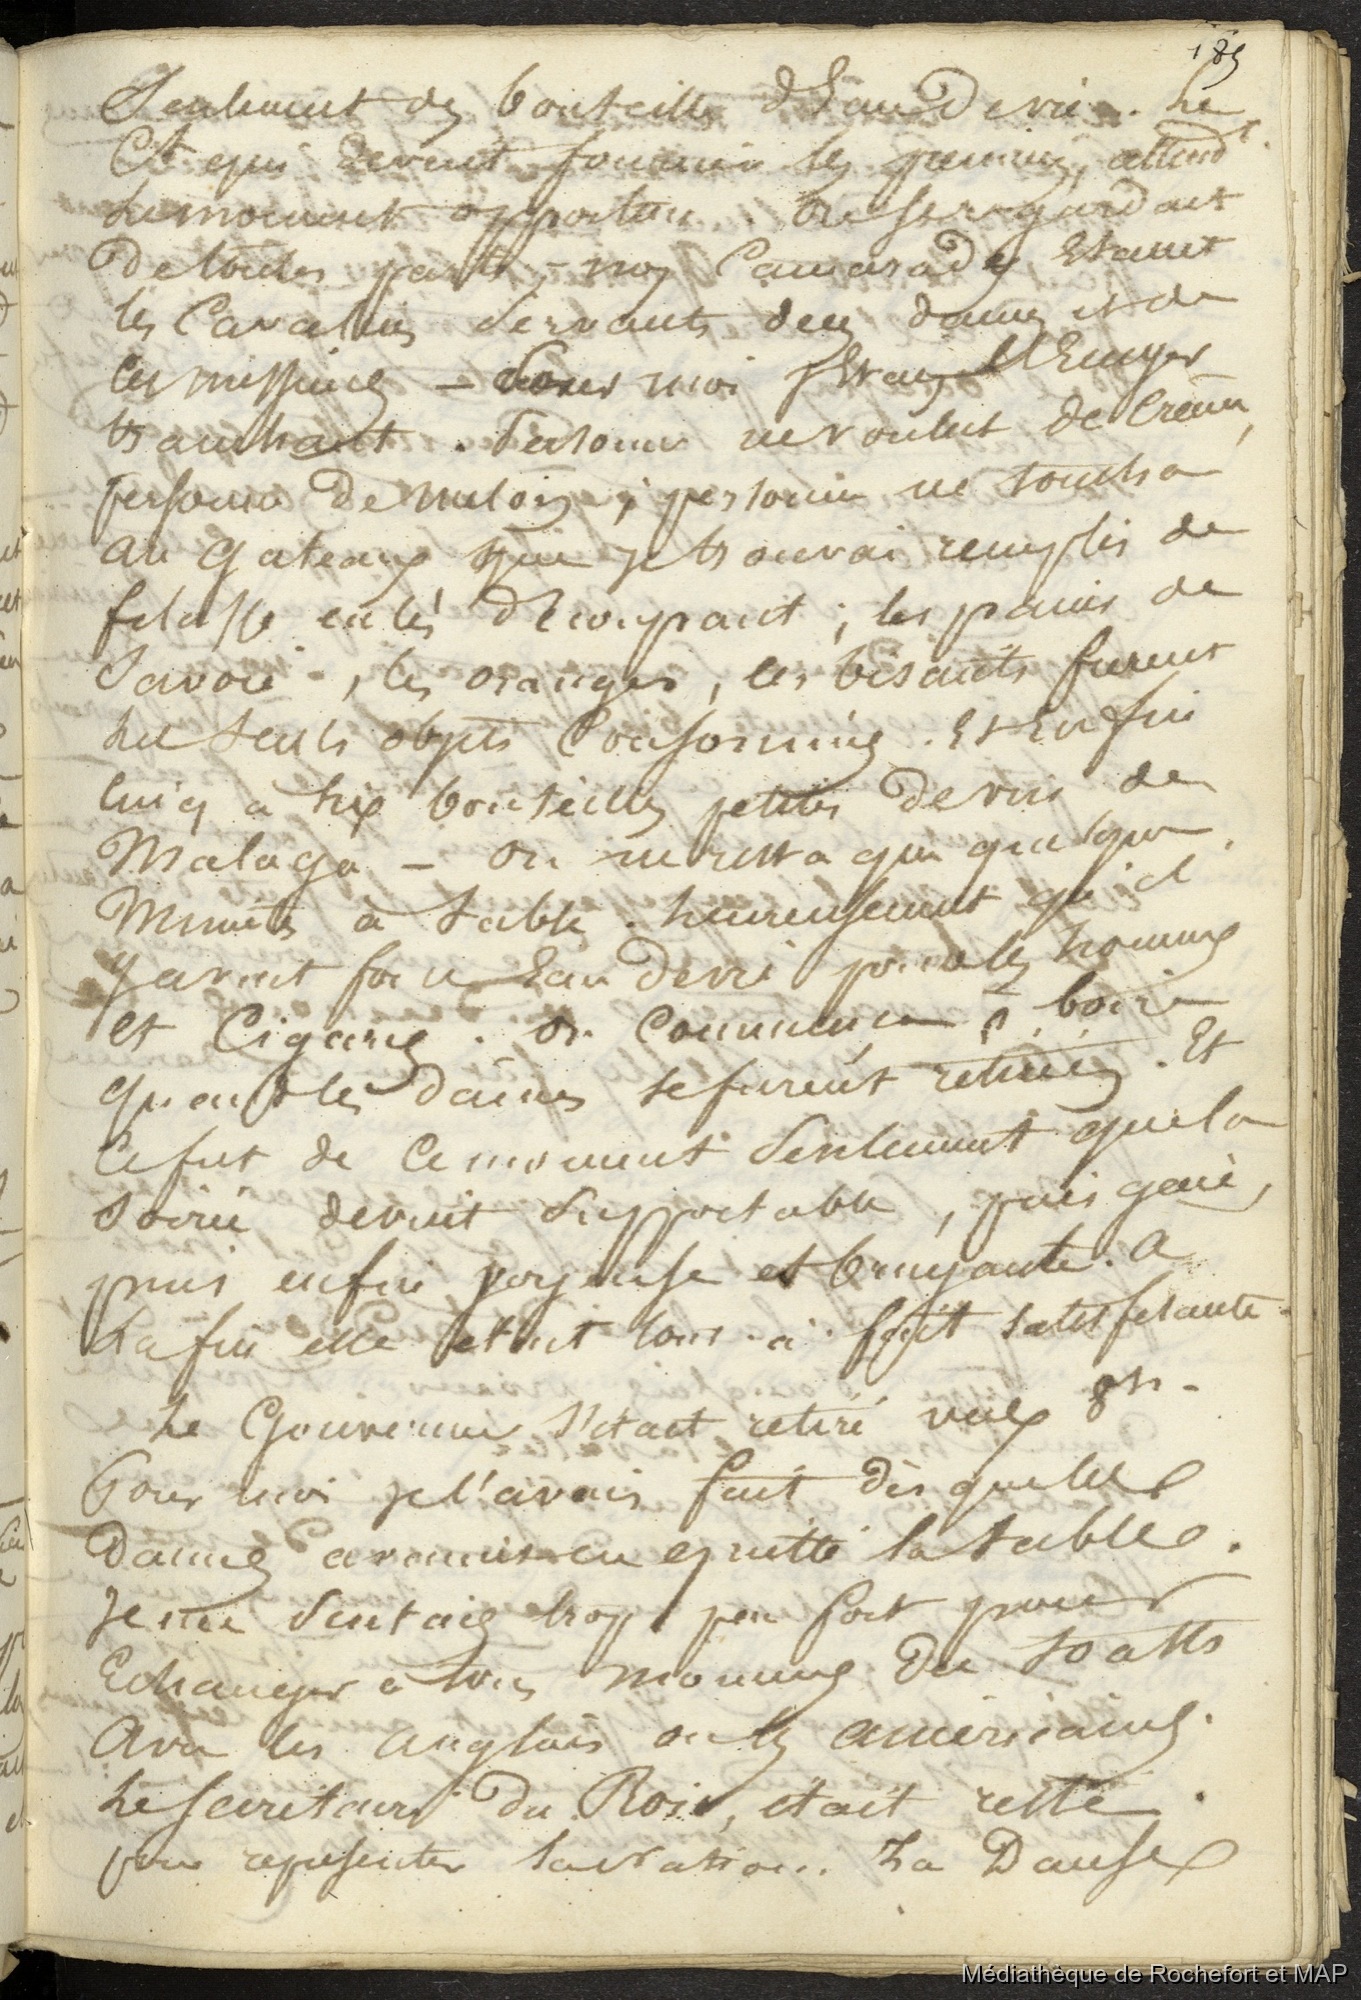 189
Seulement des bouteilles d'Eau de vie. Le
Ct qui devait fournir les premiers, attendt.
le moment opportun. On se regardait
de toutes parts, - nos Camarades Etant
les Cavaliers Servants des dames et de
ces missing - Pour moi j'Etais l'Ecuyer
tranchant. Personne ne voulut de Crême,
personne de melons; personne ne toucha
au gateaux que je trouvai remplis de
filasse en les découpant; les pains de
Savoie, les oranges, les biscuits furent
les seuls objets consommés. Et enfin
cinq à six bouteilles petites de vin de
Malaga - On ne resta que quelques
Minutes à table. heureusement qu'il
y avait force Eau de vie pour les hommes
et Cigares. On commença à boire
quand les dames se furent retirées. Et
Ce fut de ce moment seulement que la
Soirée devint supportable, puis gaie,
puis enfin joyeuse et bruyante. A
La fin elle etait tout-à-fait satisfesante.
Le Gouverneur s'était retiré vers 8h.
Pour moi je l'avais fait dès que les
Dames avaient eu quitté la table.
Je me Sentais trop peu fort pour
Echanger à tous moments des toasts
Avec les anglais ou les américains.
Le secrétaire du Roi, était resté
pour représenter la nation. La Danse
Médiathèque de Rochefort et MAP